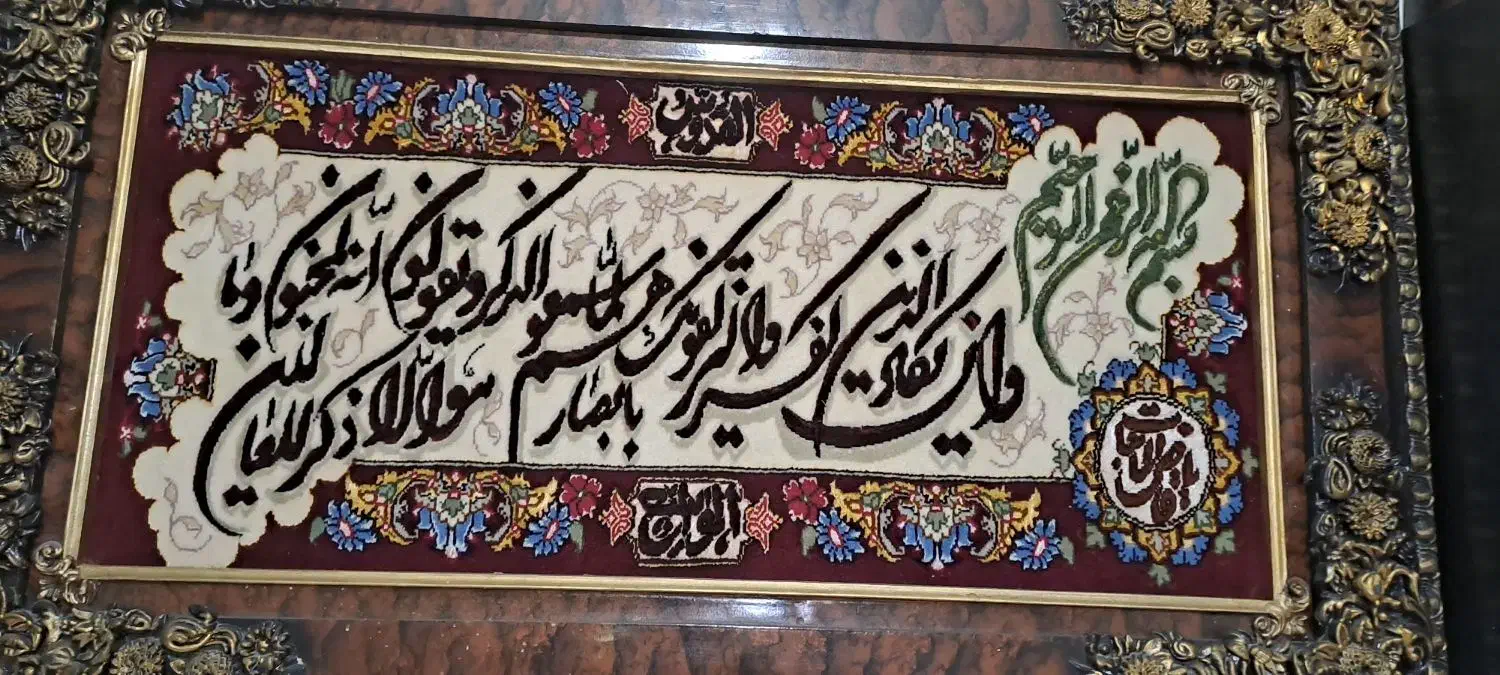 بسم الله الرحمن الرحیم
وان یکاد الذین کفروا لیزلقونک بابصارهم لما سمعوا الذکر و یقولون انه لمجنون و ما
هو الا ذکر للعالمین
یا قاضی الحاجات